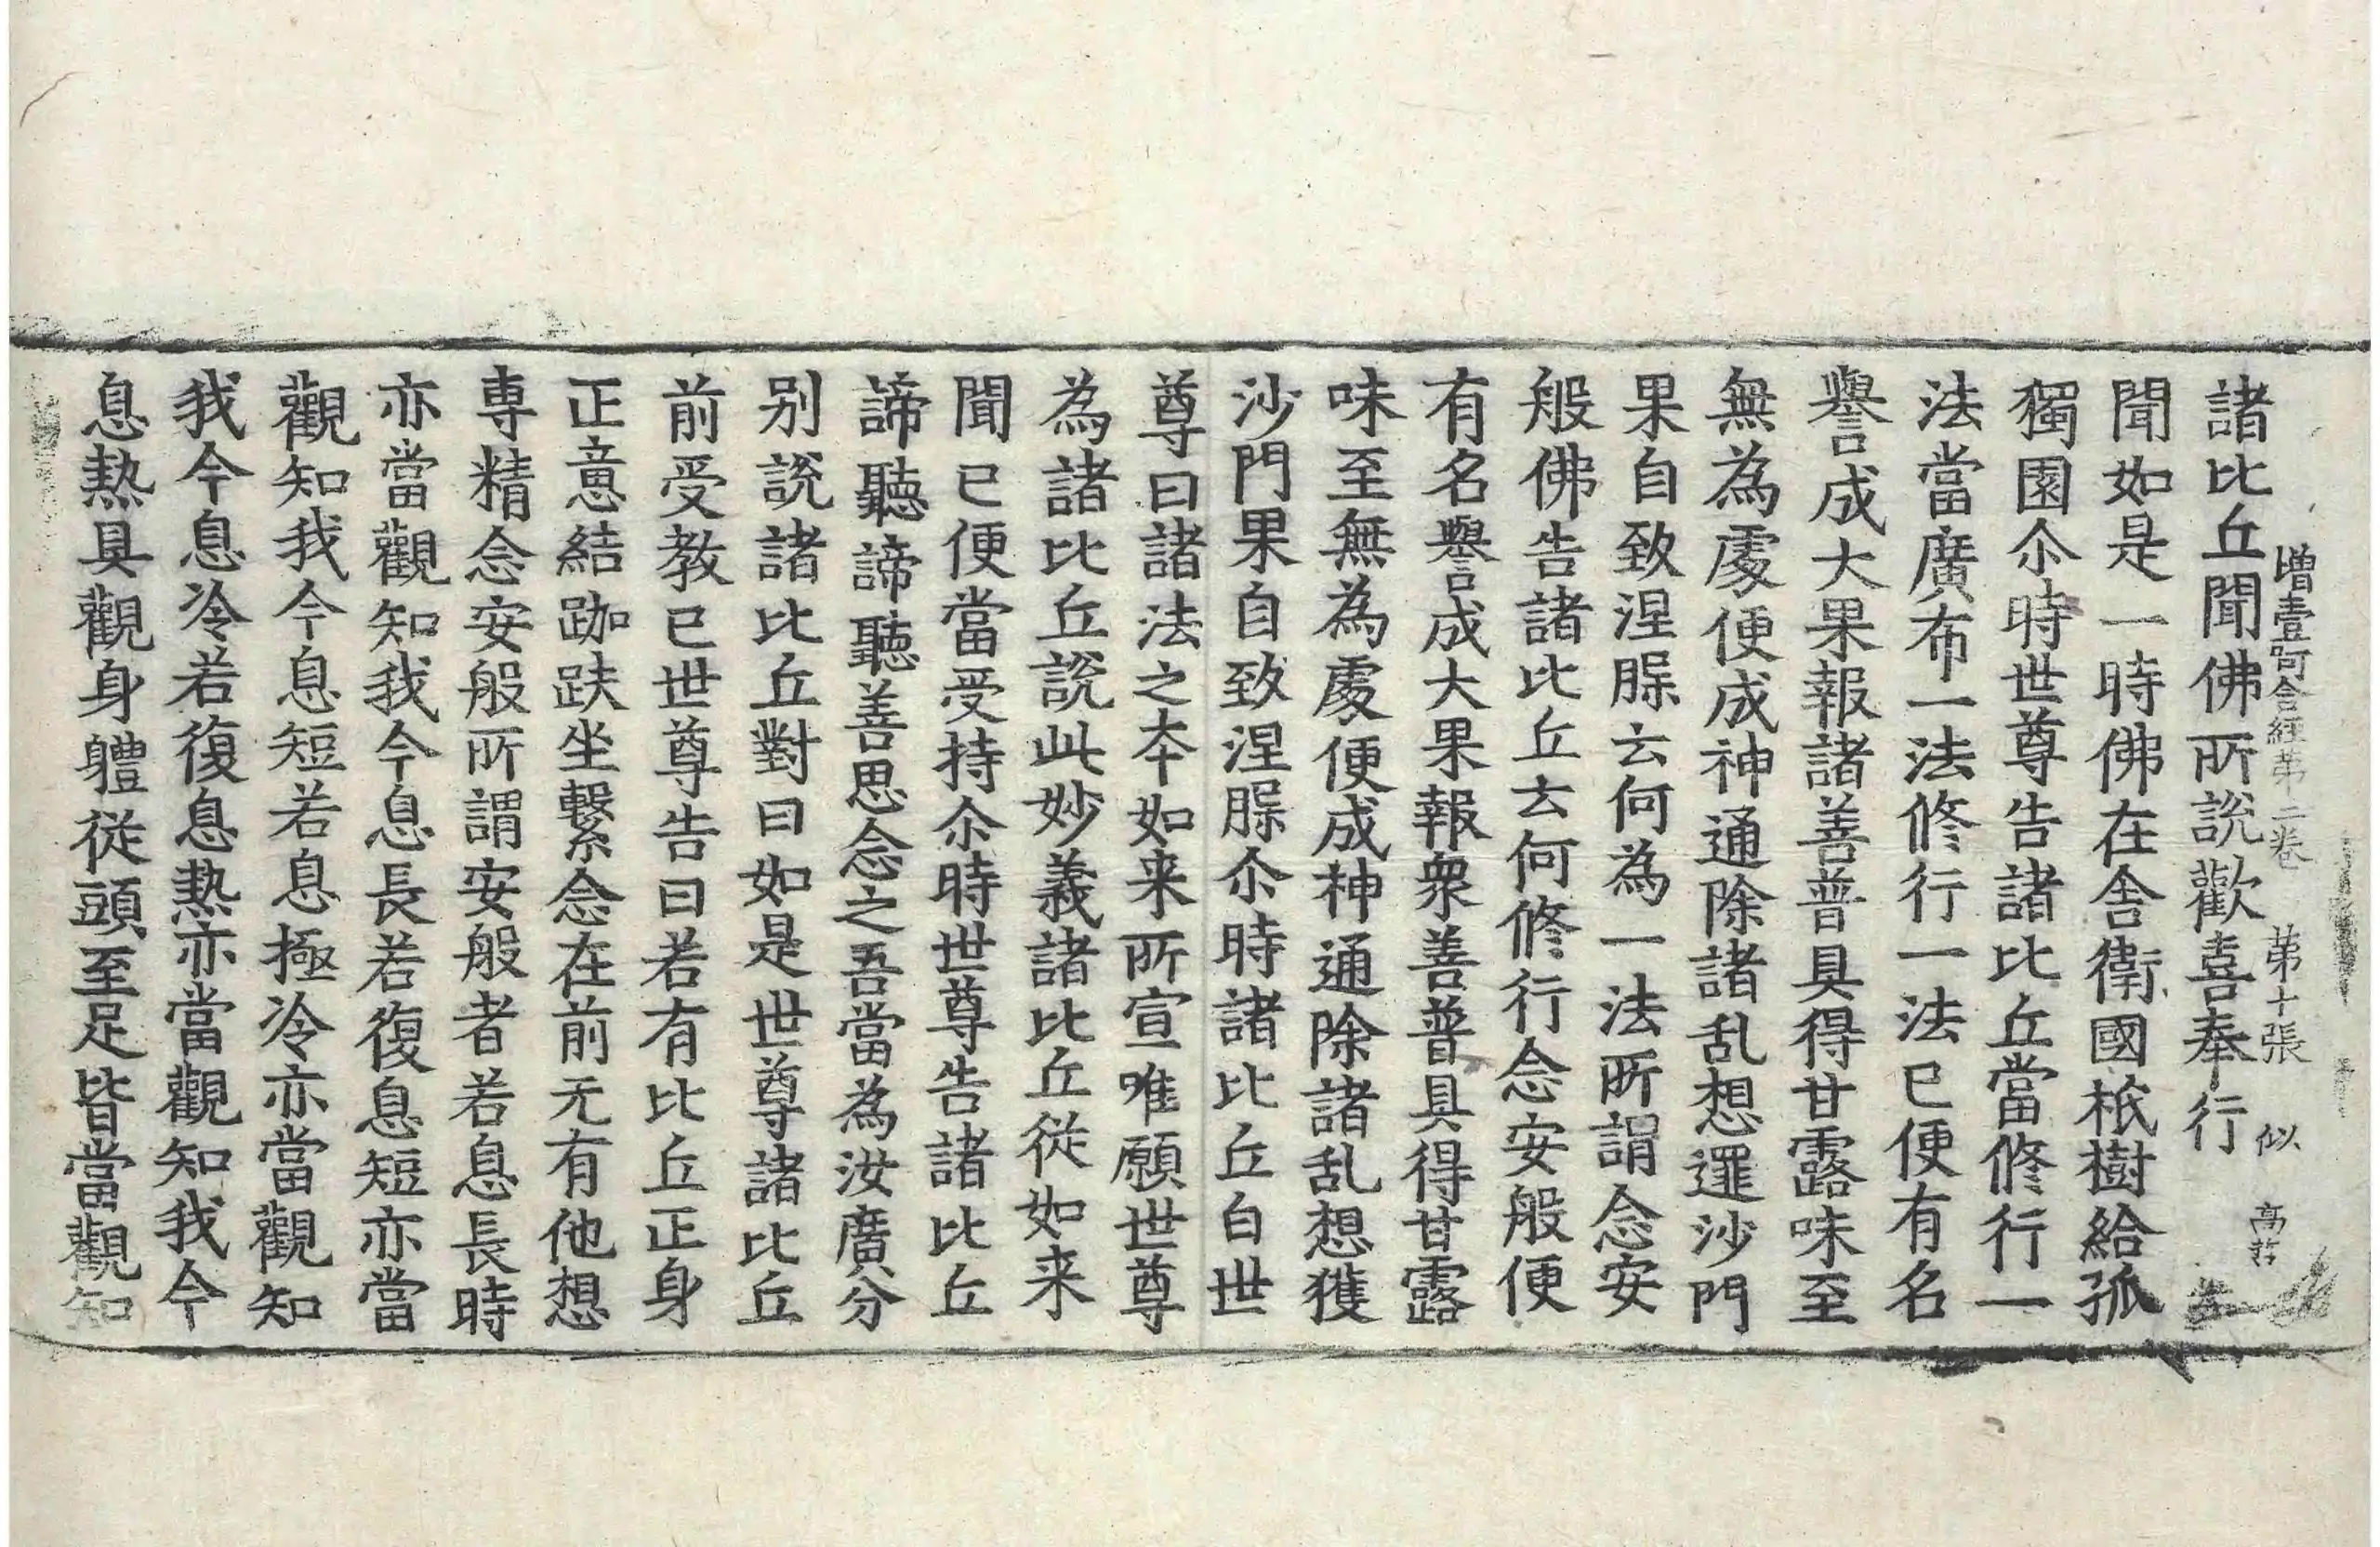 增壹阿含經第二卷 第十張 似 高
諸比丘聞佛所說歡喜奉行
聞如是一時佛在舎衛國祇樹給孤
獨園尒時世尊告諸比丘當修行一
法當廣布一法修行一法已便有名
譽成大果報諸善普具得甘露味至
無為處便成神通除諸乱想逻沙門
果自致涅槃云何為一法所謂念安
般佛告諸比丘云何修行念安般便
有名譽成大果報衆善普具得甘露
味至無為處便成神通除諸乱想獲
沙門果自致涅槃尒時諸比丘白世
尊曰諸法之夲如来所宣唯願世尊
為諸比丘說此妙義諸比丘從如来
聞已便當受持尒時世尊告諸比丘
諦聽諦聽善思念之吾當為汝廣分
别說諸比丘對曰如是世尊諸比丘
前受教已世尊告曰若有比丘正身
正意結跏趺坐繫念在前无有他想
専精念安般所謂安般者若息長時
亦當觀知我今息長若復息短亦當
觀知我今息短若息極冷亦當觀知
我今息冷若復息熱亦當觀知我今
息熱具觀身體從頭至足皆當觀知